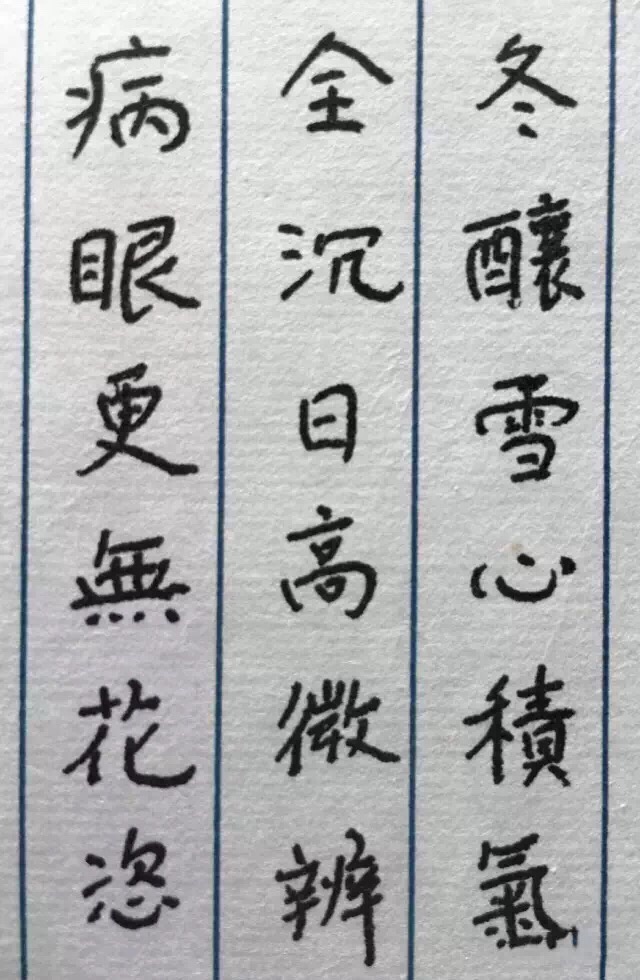 冬釀雪心積氣
全沉日高微辨
病眼更無花恣